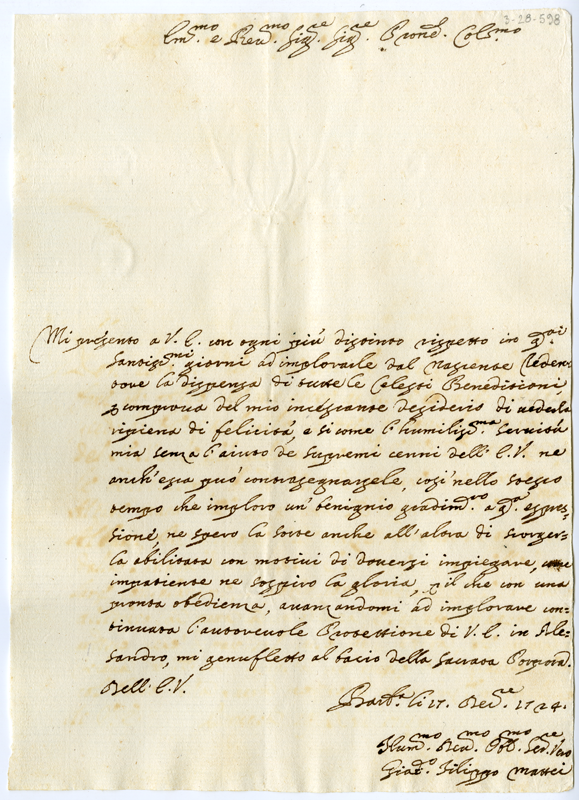 3-28-598
Em.mo e Rev.mo Sig.re Sig.re Pron.e Col.mo
Mi presento a V. E. con ogni più distinto rispetto in q.ti
Santiss.mi giorni ad implorarle dal Nascente Reden-
tore la dispensa di tutte le Celesti Beneditioni,
p comprova del mio incessante desiderio di vederla
ripiena di felicità, e si come l'humiliss.ma servitù
mia senza l'aiuto de supremi cenni dell' E. V. ne
anch'essa può contrasegnarsele, così nello stesso
tempo che imploro un' benignio gradim.to a q.ta espres-
sione, ne spero la sorte anche all'altra di scorger-
la abilitata con motivi di doversi impiegare, come
impatiente ne sospiro la gloria, p il che con una
pronta obedienza, avanzandomi ad implorare con-
tinuata l'autorevole Protettione di V. E. in Ale-
sandro, mi genufletto al bacio della Sacrata Porpora
dell' E. V.
Barb.a li 17. Dec.re 1724.
Hum.mo Dev.mo Obl. Ser.re Vero
Filippo Mattei